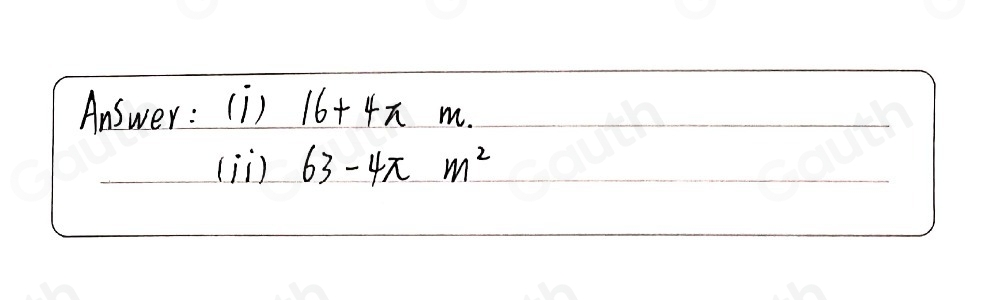 Answer: (i) 16+4π m.
(ii) 63-4π m²